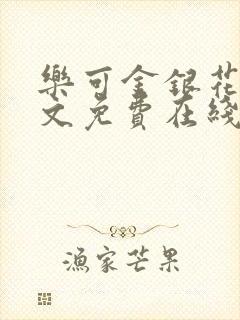 樂可金銀花
文免費在綫
漁家芒果